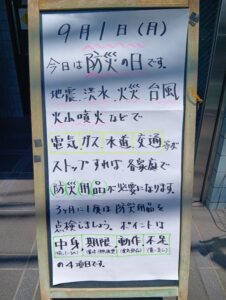 9月1日(月)
今日は防災の日です。
地震、洪水、火災、台風
火山噴火などで
電気、ガス、水道、交通等が
ストップすれば各家庭で
防災用品が必要になります。
3ヶ月に1度は防災用品を
点検しましょう。ポイントは
中身 期限 動作 不足
の4項目です。